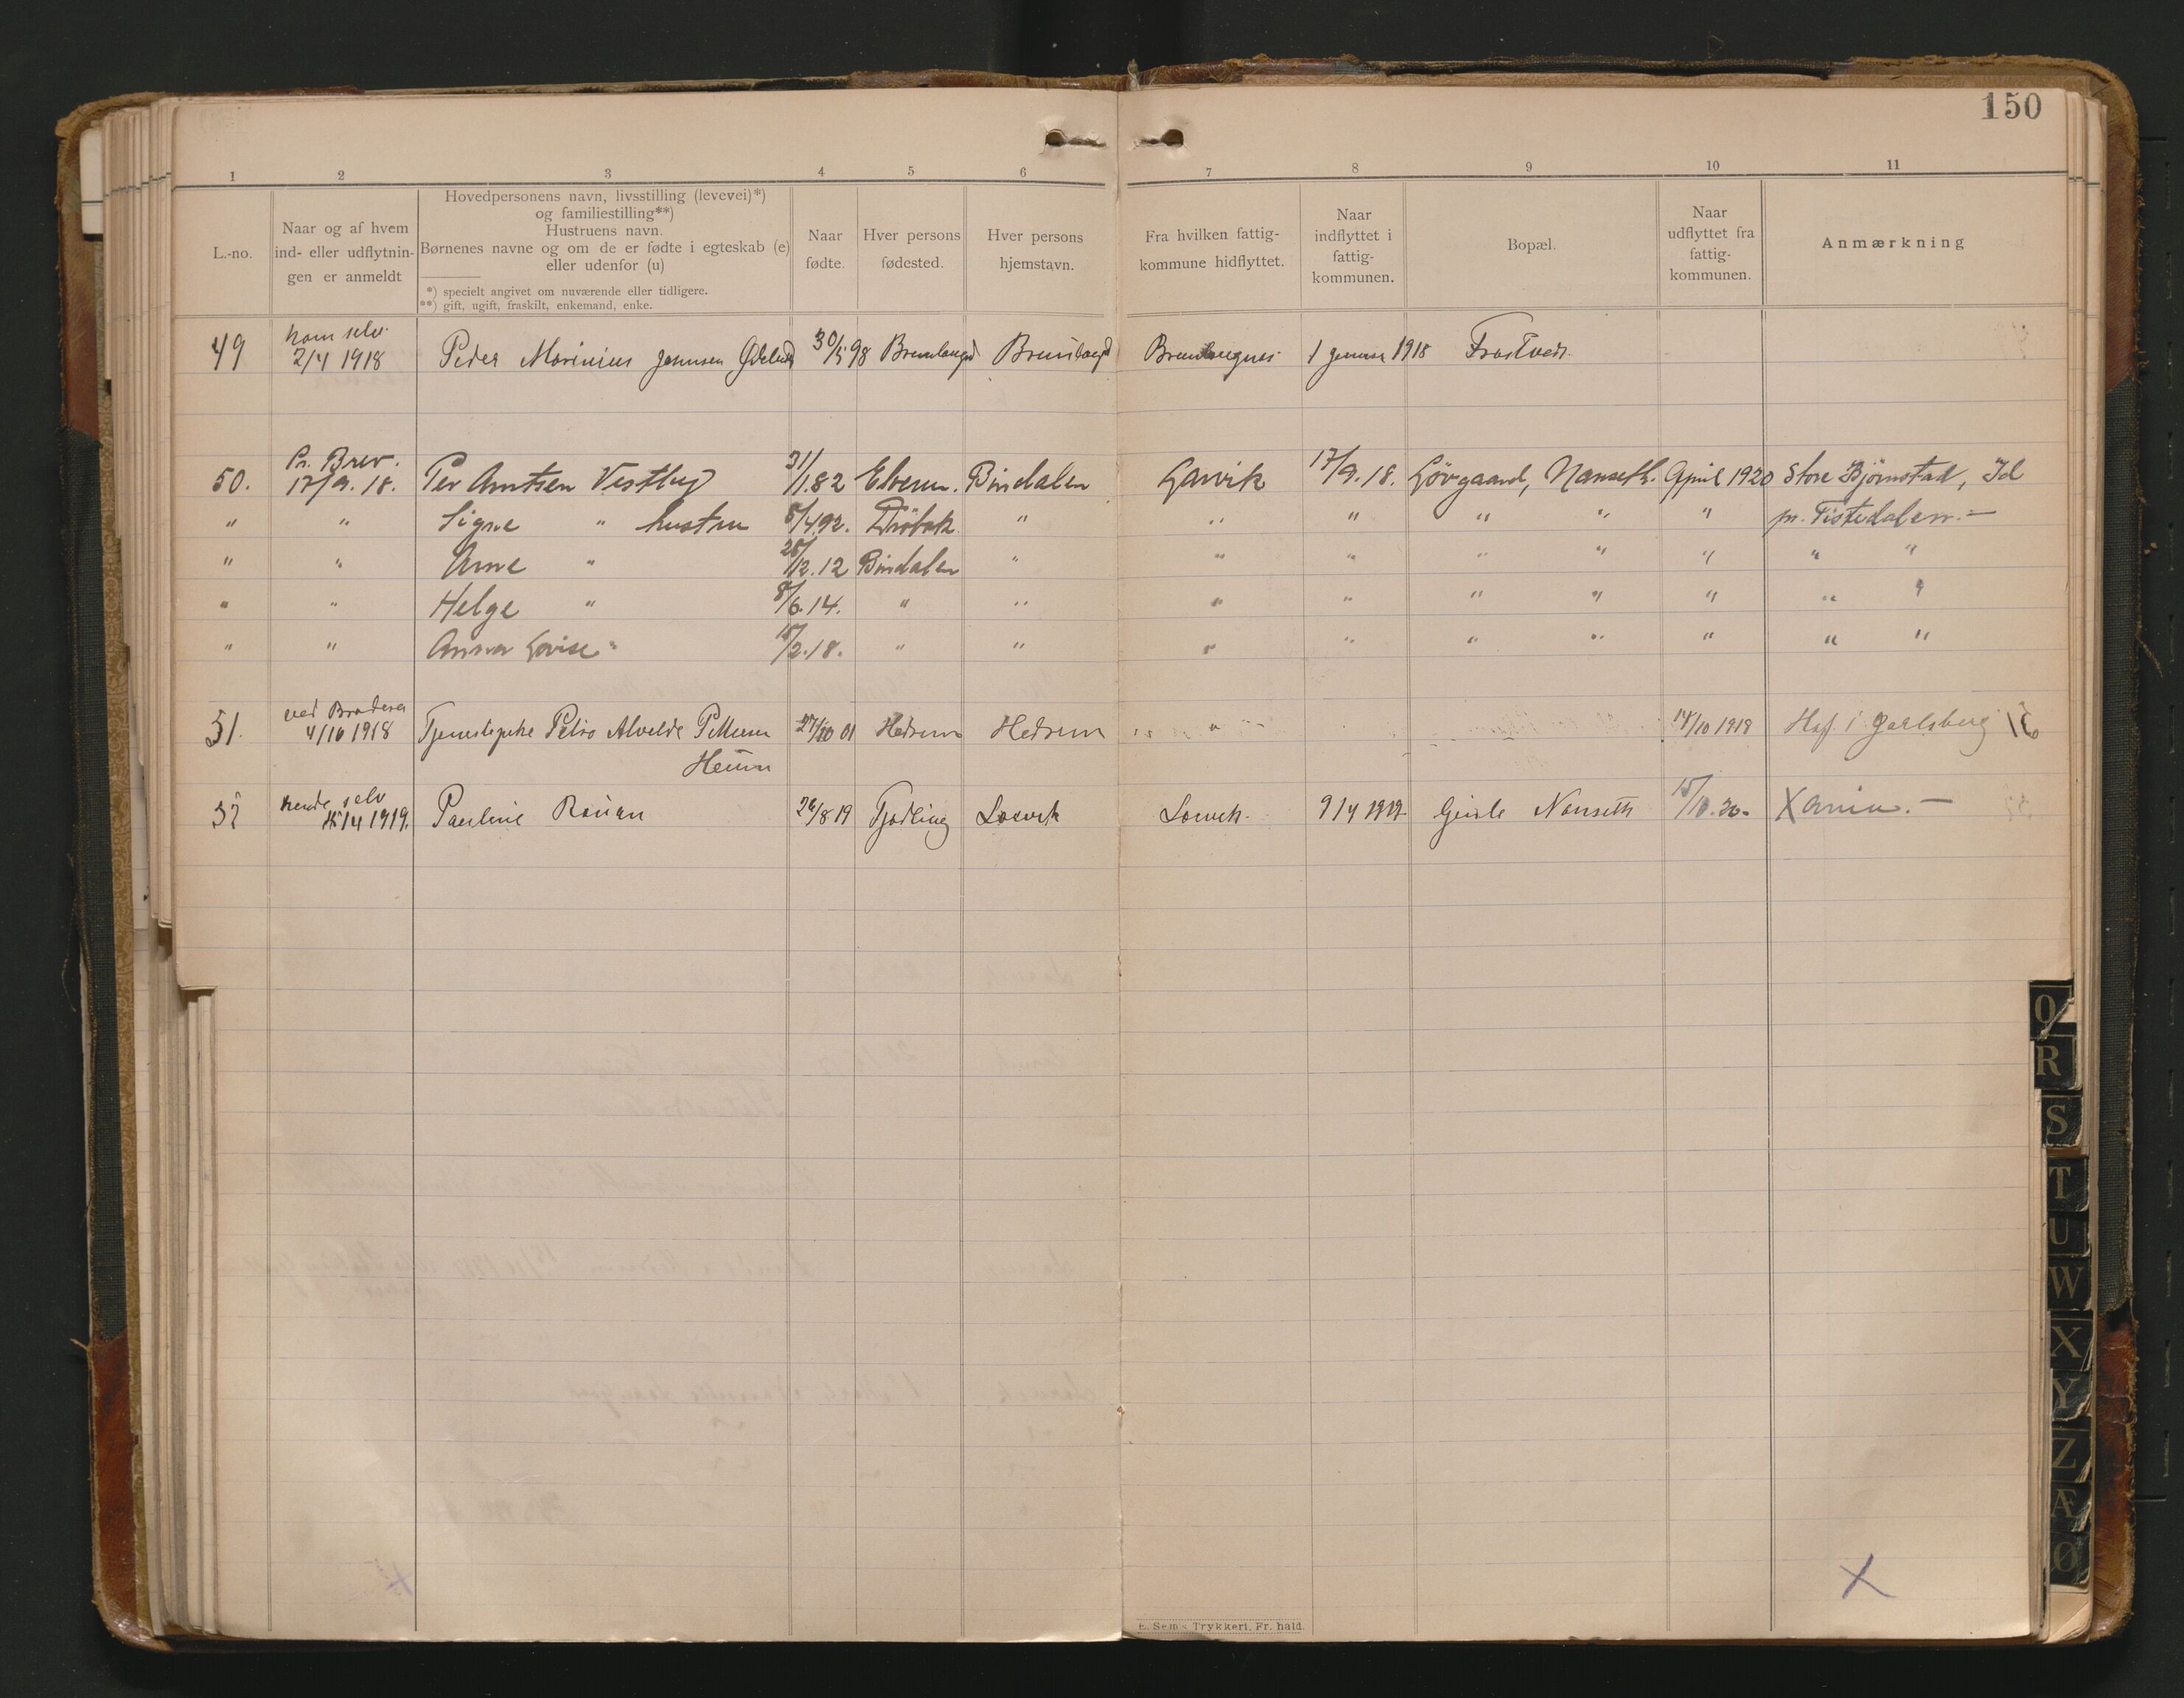 150
1 2 3 4 5 6 7 8 9 10 11
L.-no.
Naar og af hvem
ind- eller udflytnin-
gen er anmeldt
Hovedpersonens navn, livsstilling (levevei)*)
og familiestilling**)
Hustruens navn.
Børnenes navne og om de er fødte i egteskab (e)
eller udenfor (u)
*) specielt angivet om nuværende eller tidligere.
**) gift, ugift, fraskilt, enkemand, enke.
Naar
fødte.
Hver persons
fødested.
Hver persons
hjemstavn.
Fra hvilken fattig-
kommune hidflyttet.
Naar
indflyttet i
fattig-
kommunen.
Bopæl.
Naar
udflyttet fra
fattig-
kommunen.
Anmærkning
ham selv
49 2/4 1918 Peder Marinius 30/5 98 1 1918
Pr. Brev.
50. 17/9. 18. Per Arntsen Vestby 31/1.82 Elverum. Bindalen Larvik 17/9.18. Lövgaard, Nanseth. April 1920 Store Bjørnstad, Id
" " Signe " hustru 8/4.92. Drøbak " " " " " " pr. Tistedalen.—
" " Arne " 28/12.12 Bindalen " " " " " " " "
" " Helge " 8/6.14. " " " " " " " " "
" " Anna Lovise " 18/2.18. " " " " " " " " "
ved Broderen
51. 4/10 1918 Tjenestepike 01 Hedrum Hedrum " " 14/10 1918 Hof i Jarlsberg
hende selv
52 1919. Pauline 26/8 19 Tjødling Larvik Larvik 9/4 1919 Nanseth 15/10.20.
X
E. Sem's Trykkeri, Fr. hald.
Q
R
S
T
U
W
X
Y
Z
Æ
Ø